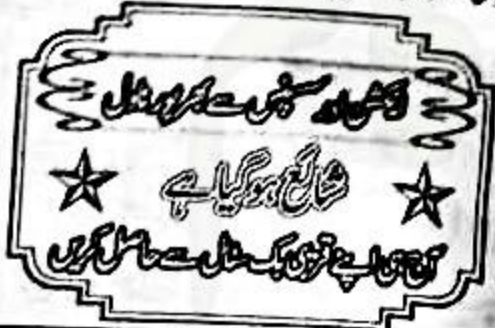 ایکشن اور سسپنس سے بھرپور ناول
شائع ہو گیا ہے
آج ہی اپنے قریبی بک سٹال سے حاصل کریں